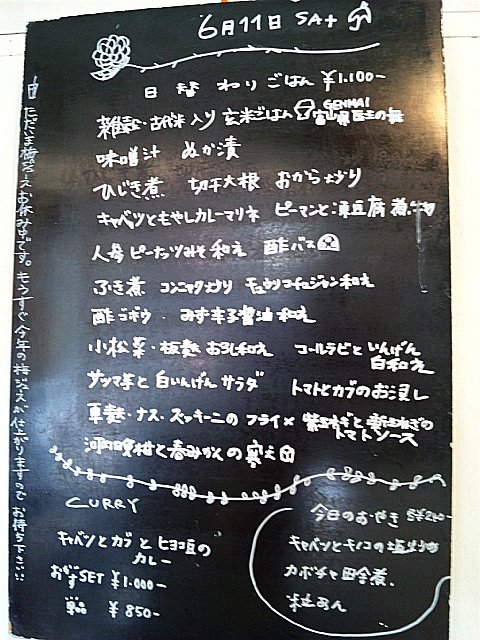 6月11日 SAT
日替わりごはん ¥1.100-
雑穀・古代米入り 玄米ごはん GENMAI 富山県
味噌汁 ぬか漬
ひじき煮 切干大根 おから炒り
キャベツともやしカレーマリネ ピーマンと凍豆腐煮物
人参ピーナッツみそ和え 酢バス
ふき煮 コンニャク炒り キュウリコチュジャン和え
酢ゴボウ みず辛子醤油和え
小松菜・板麩おろし和え コールラビといんげん白和え
サツマ芋と白いんげんサラダ トマトとカブのお浸し
車麩・ナス・ズッキーニのフライ× 紫玉ねぎと新玉ねぎのトマトソース
河内晩柑と春みかんの寒天
CURRY
キャベツとカブとヒヨコ豆の
カレー
おかずSET ¥1.000-
単品 ¥850-
今日のおやき
キャベツとキノコの塩炒め
カボチャ田舎煮.
粒あん
ただいま梅ジュースお休み中です。もうすぐ今年の梅ジュースが仕上がりますのでお待ち下さい!!